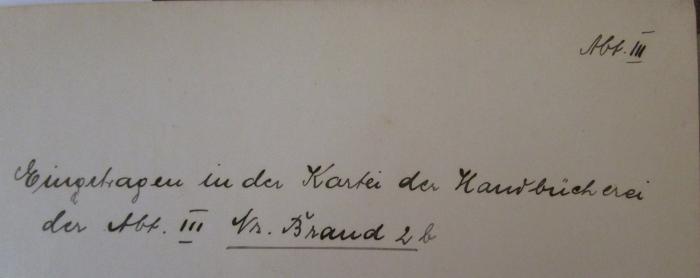 Abt. III
Eingetragen in der Kartei der Handbücherei
der Abt. III Nr. Brand 2b